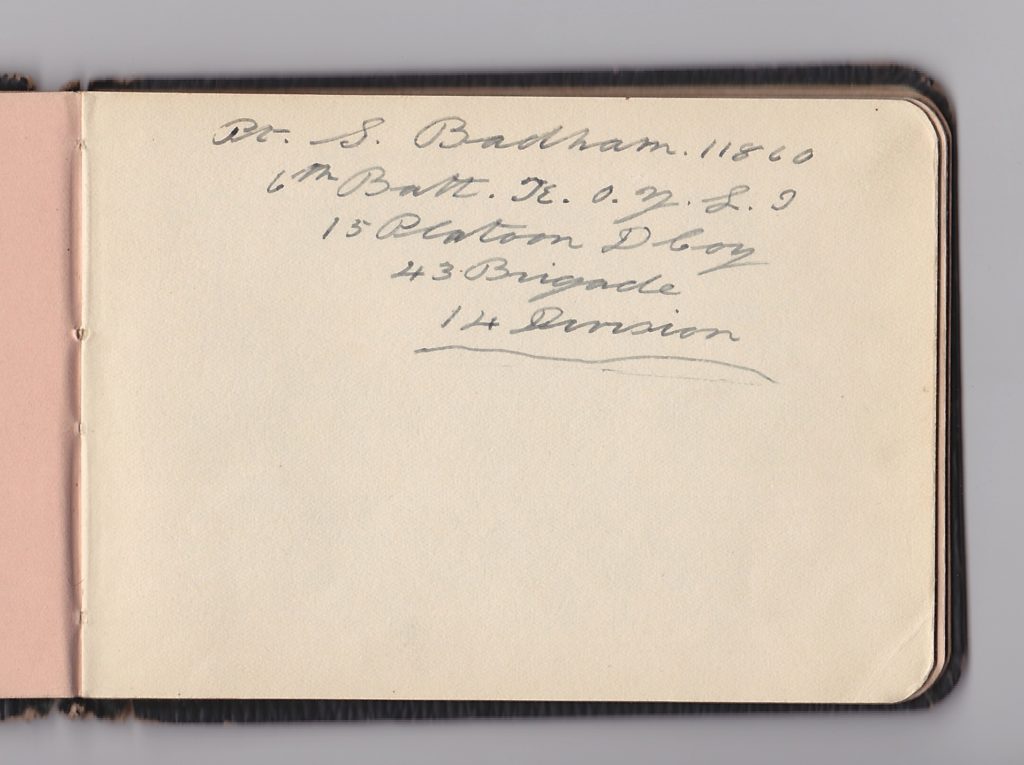 Pt. S. Badham. 11860
6th Batt. K. O. Y. L. I
15 Platoon D Coy
43 Brigade
14 Division